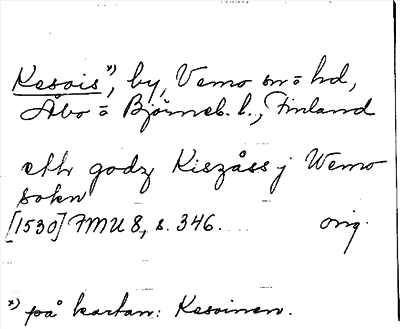 Kesois *), by, Vemo sn o hd,
Åbo o Björneb. l., Finland
ett godz Kiszåss j Wemo
sokn
[1530] FMU 8, s. 346. orig.
*) på kartan: Kesoinen.